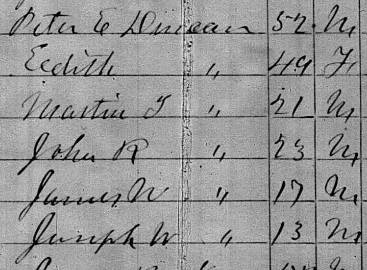 Peter E Duncan 52 M
Edith " 49 F
Martin T " 21 M
John R " 23 M
James W " 17 M
Joseph W " 13 M